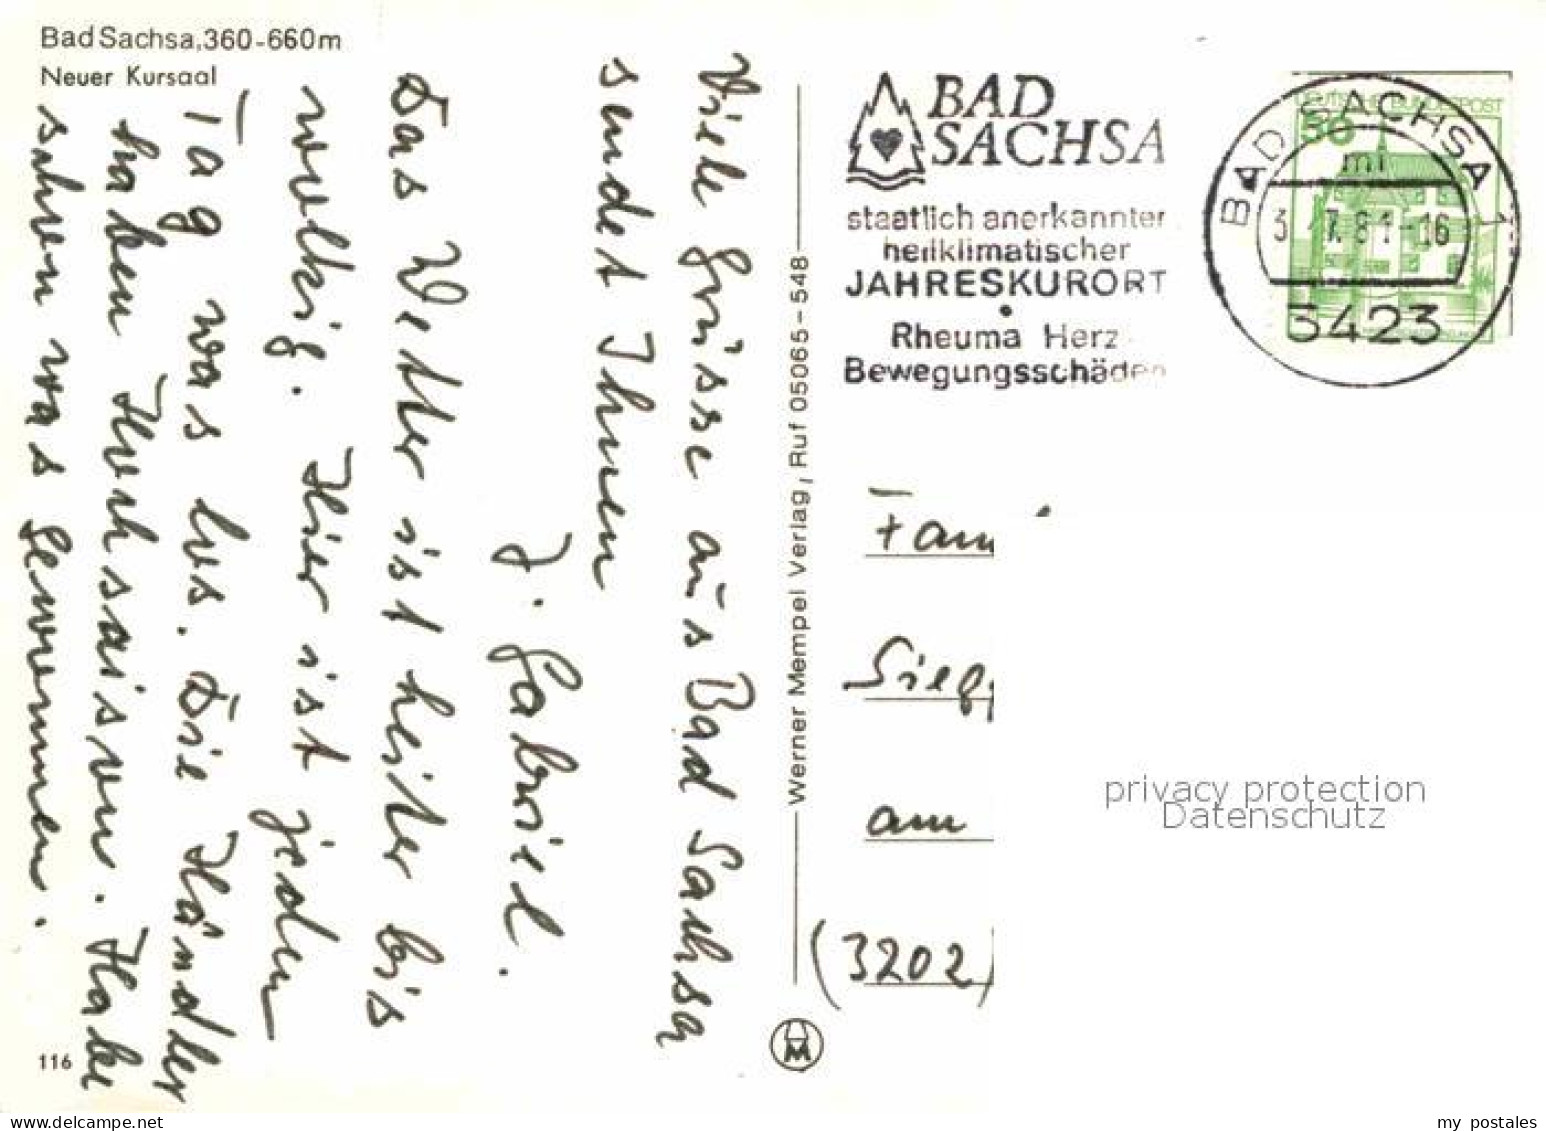 Bad Sachsa, 360-660 m
Neuer Kursaal
Viele Grüsse aus Bad Sachsa
sendet Ihnen
J. Gabriel.
Das Wetter ist heiter bis
wolkig. Hier ist jeden
Tag was los. Die Händler
haben Hochsaison. Habe
schon was gewonnen.
116
Werner Mempel Verlag, Ruf 05065-548
BAD
SACHSA
staatlich anerkannter
heilklimatischer
JAHRESKURORT
Rheuma Herz
Bewegungsschäden
DEUTSCHE BUNDESPOST
50
BAD SACHSA 1
mi
3. 7.81-16
3423
Fam
Sieg
am
(3202)
privacy protection
Datenschutz
my postales